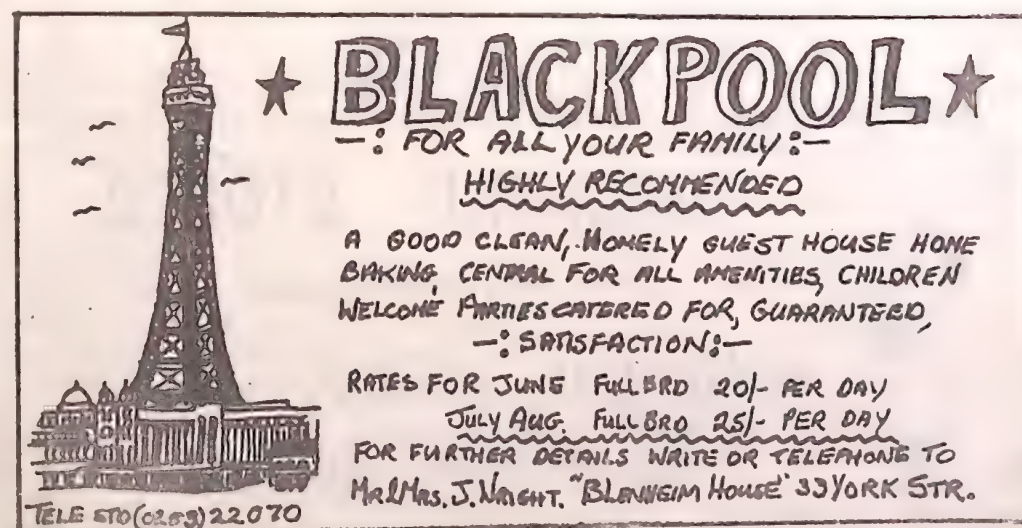 BLACKPOOL
-: FOR ALL YOUR FAMILY :-
HIGHLY RECOMMENDED
A GOOD CLEAN, HOMELY GUEST HOUSE HOME
BAKING, CENTRAL FOR ALL AMENITIES, CHILDREN
WELCOME PARTIES CATERED FOR, GUARANTEED,
-: SATISFACTION :-
RATES FOR JUNE FULL BRD 20/- PER DAY
JULY AUG. FULL BRD 25/- PER DAY
FOR FURTHER DETAILS WRITE OR TELEPHONE TO
MR & MRS. J. WRIGHT. "BLENHEIM HOUSE" 33 YORK STR.
TELE STD (0253) 22070